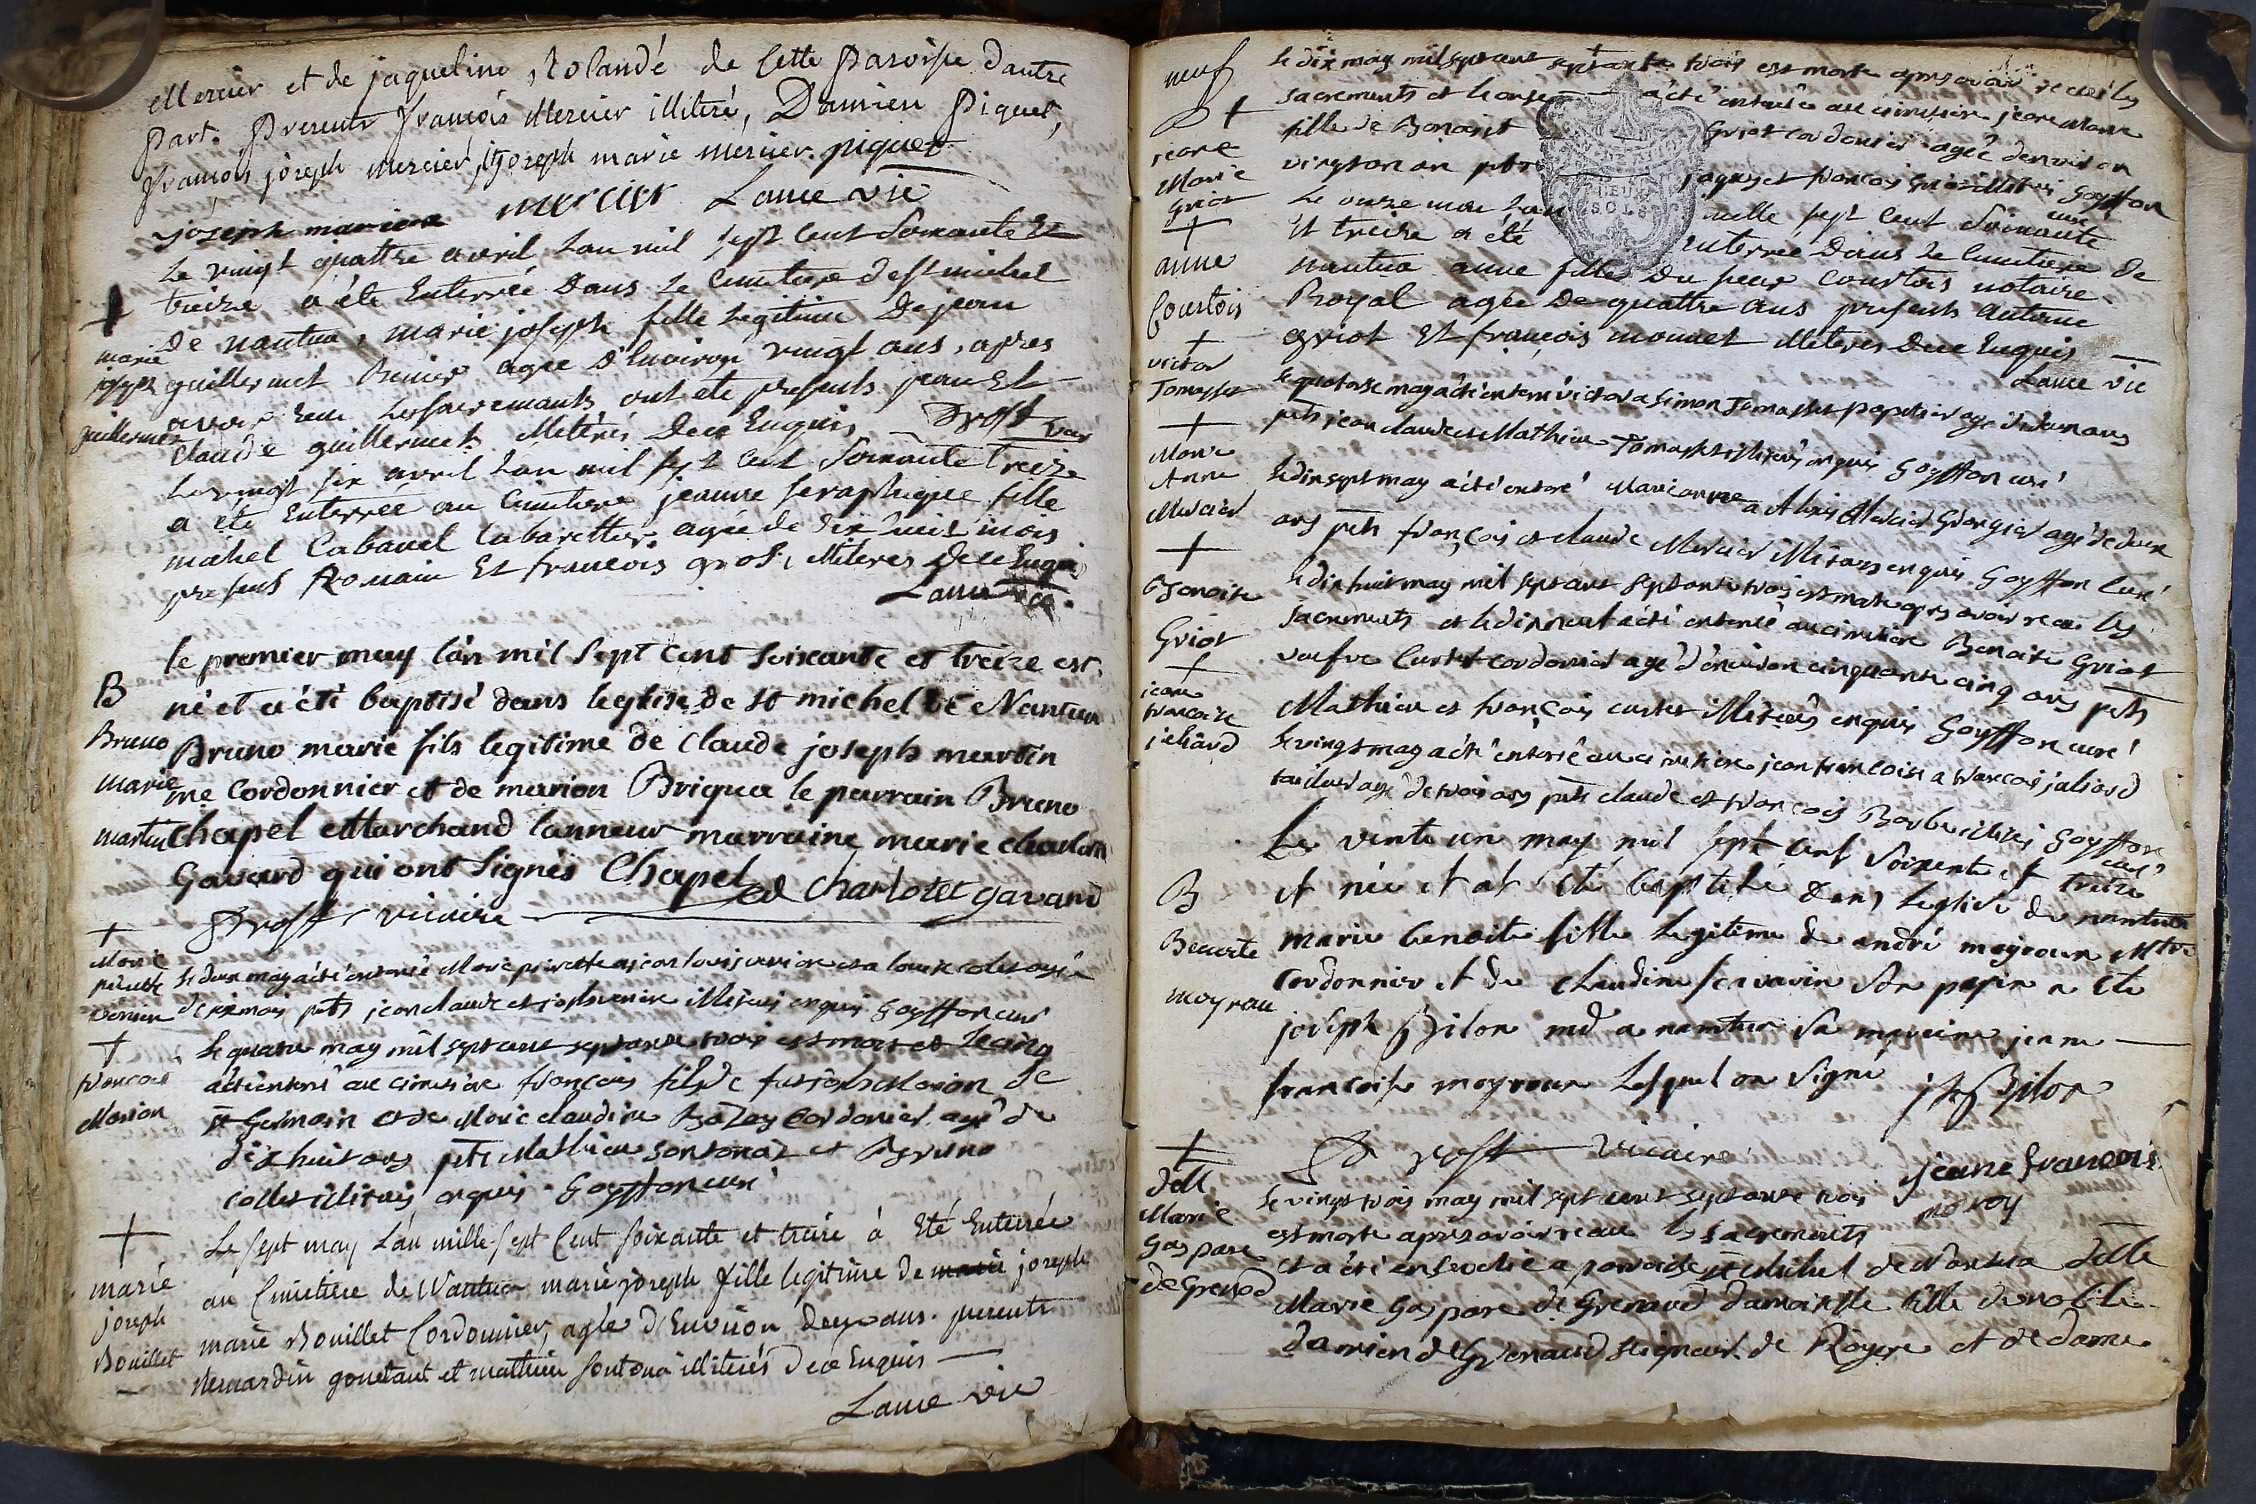 Mercier et de jaqueline Rolandé de cette Paroisse d'autre
Part. Presents françois Mercier illitéré, Damien Piquet,
françois joseph mercier, & joseph marie mercier. piquet
joseph marie mercier Lame vic
Le vingt quattre avril L'an mil sept cent soixante Et
treize a été Enterrée Dans Le Cimetiere de st michel
De nantua, marie joseph fille Legitime De jean
guillermet agée d'Environ vingt ans, apres
avoir Recu Les sacremants ont ete presents jean Et
Claude guillermet illiterés De ce Enquis Drost vic
+
marie
joseph
guillermet
Le vingt six avril L'an mil sept cent soixante treize
a été Enterrée au Cimetiere jeanne seraphique fille
michel Cabanel Cabarettier agée de dix huit mois
presents Romain Et françois gros, illiteres De ce Enquis
Lame vic
le premier may l'an mil sept cent soixante et treize est
né et a été baptisé dans leglise de st michel DE Nantua
Bruno marie fils legitime de Claude joseph martin
me Cordonnier et de marion Briquea le parrain Bruno
chapel Marchand tanneur marraine marie charlotte
Gavard qui ont signés Chapel Charlotet gavand
Drost vicaire
B
Bruno
marie
martin
+
Marie
pierrette
vernier
Le deux may a été enterrée Marie pierrette a jean louis et a louise colet agée
de six mois pnts jean claude et illiterés enquis Goyffon curé
+
françois
Marion
Le quatre may mil sept cent septante trois est mort et Le cinq
a été enterré au cimetiere françois fils de fut joseph Marion de
st Germain et de Marie claudine Bozay Cordonier agé de
dix huit ans pnts Mathieu sontonaz et Bruno
collet illiterés enquis Goyffon curé
+
marie
joseph
Bouillet
Le sept may L'an mille sept Cent soixante et treize à Eté Enterrée
au Cimetiere de Nantua marie joseph fille legitime de marie joseph
marie Bouillet Cordonnier, agée d'Environ deux ans. presents
Bernardin gonetant et mathieu sontona illiterés de ce Enquis
Lame vic
neuf
+
jeane
Marie
Griot
Le dix may mil sept cent septante trois est morte apres avoir receu les
sacrements et Le onze a été enterrée au cimetiere jeane Marie
fille de Benoist Griot cordonier agée denviron
vingt un an pnts jaques et francois Griot illiterés Goyffon
curé
+
anne
Courtois
Le onze mai L'an mille sept Cent soixante
Et treize a été Enterrée Dans Le Cimetiere De
nantua anne fille Du sieur Courtois notaire
Royal agée De quattre ans presents antoine
griot Et françois monnet illiteres De ce Enquis
Lame vic
+
victor
Tomasset
Le quatorse may a été enterré victor a Simon Tomasset papetier agé de deux ans
pnts jean claude et Mathieu Tomasset illiterés enquis Goyffon curé
+
Marie
Anne
Mercier
Le dix sept may a été enterré Marianne a Alexis Mercier Georgier agé de deux
ans pnts françois et claude Mercier illiterés enquis Goyffon Curé
+
Benoite
Griot
Le dix huit may mil sept cent septante trois est morte apres avoir receu les
Sacrements et le dix neuf a été enterrée au cimetiere Benoite Griot
veufve Curtet cordonier agé d'environ cinquante cinq ans pnts
Mathieu et françois curtet illiterés enquis Goyffon curé
+
jeane
francoise
juliard
Le vingt may a été enterré au cimetiere jean francoise a francois juliard
tailleur agé de trois ans pnts claude et francois Barbe illiterés Goyffon
curé
B
Benoite
moyroux
Le vente un may mil sept cent soixente et treize
et née et at été baptisée dans leglise de nantua
marie benoite fille Legitime de andré moyroux Mtre
cordonnier et de claudine servavin son parin a ete
joseph Bilon md a nantua sa mareine jenne
francoise moyroux Lesquel on signé jh Bilon
Drost vicaire jeane francois
moroy
+
Delle
Marie
Gaspare
de Grenod
Le vingt trois may mil sept cent septante trois
est morte apres avoir receu les sacrements
et a été ensevelie a paroisse st Michel de Nantua Delle
Marie Gaspare de Grenaud Damoiselle fille de noble
Damien de Grenaud seigneur de Rogere et de dame